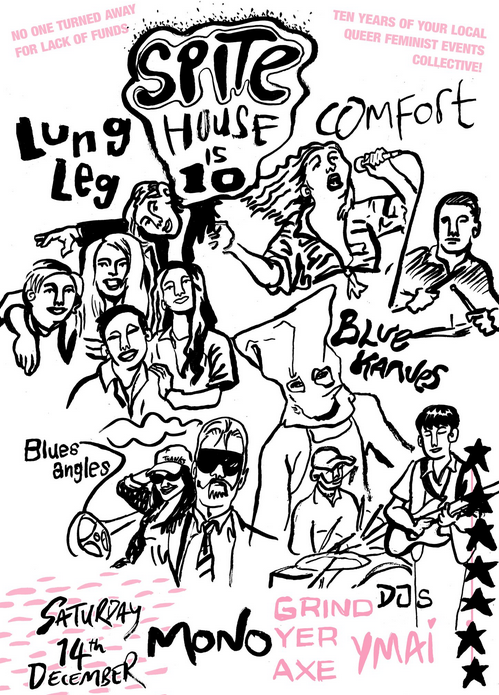 NO ONE TURNED AWAY
FOR LACK OF FUNDS
TEN YEARS OF YOUR LOCAL
QUEER FEMINIST EVENTS
COLLECTIVE!
SPITE
HOUSE
IS
10
Lung
Leg
COMFORT
BLUE
KANUES
Blues
angles
SATURDAY
14th
DECEMBER
MONO
GRIND
YER
AXE
DJS
YMAI